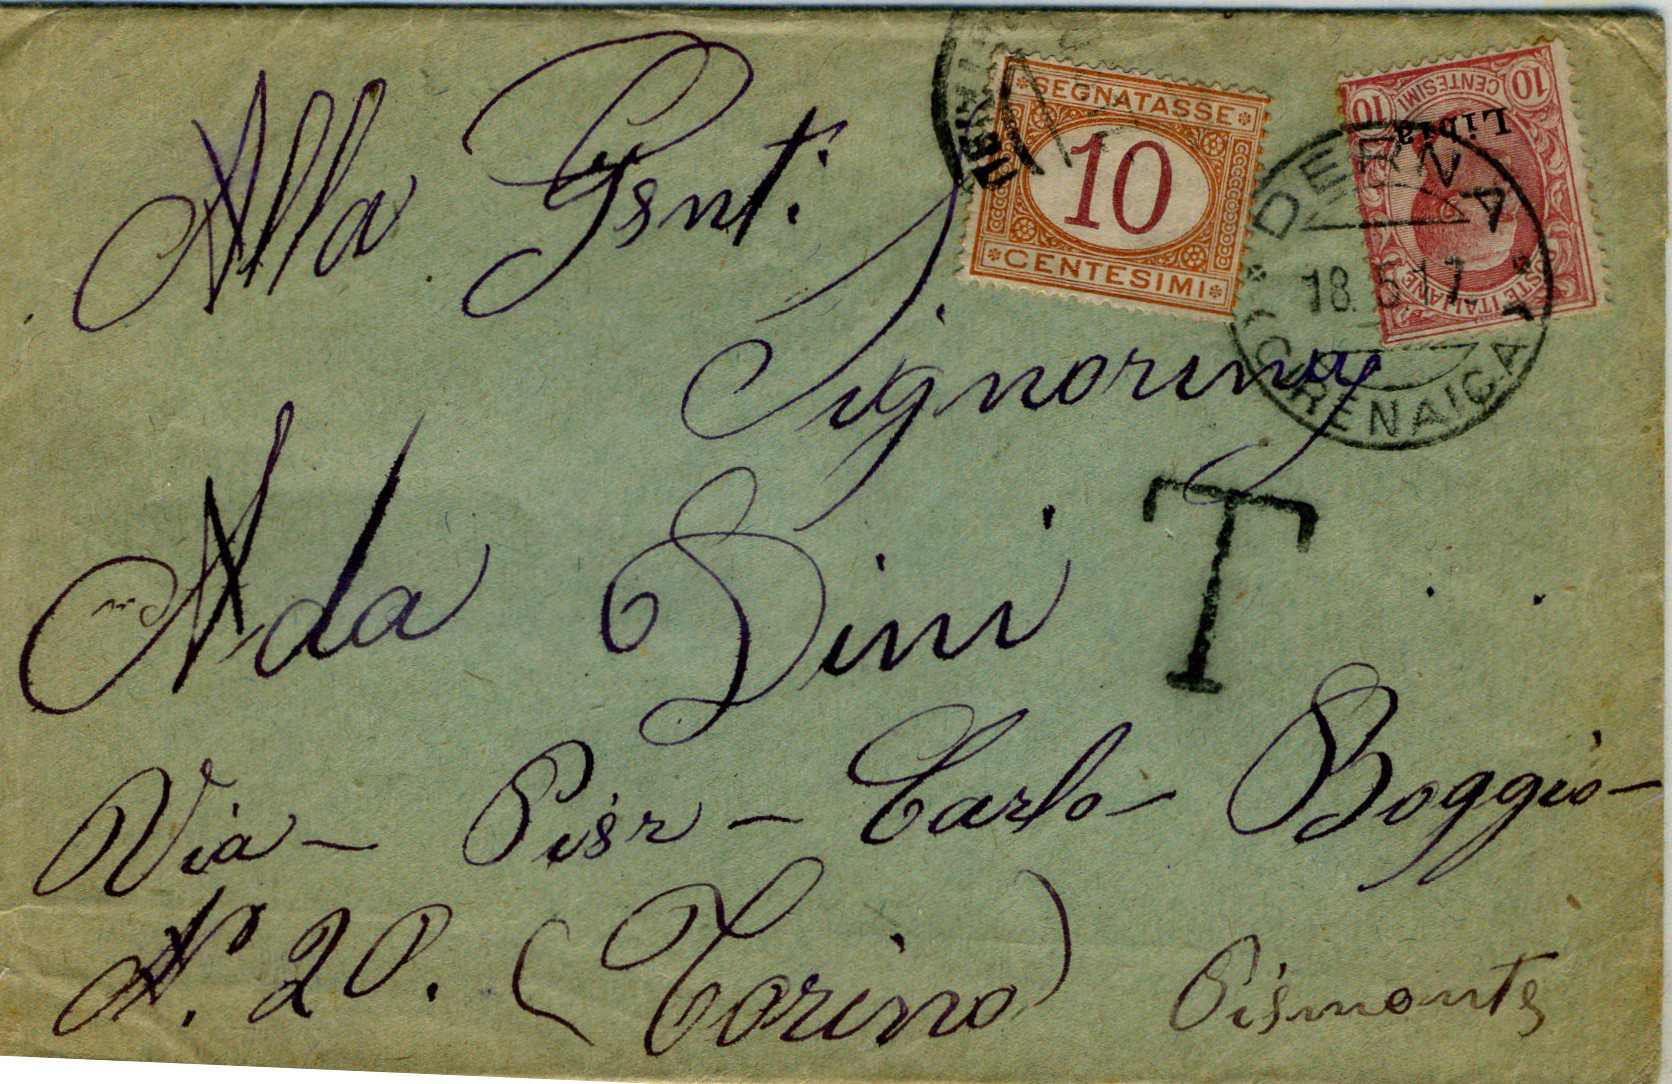 SEGNATASSE
10
CENTESIMI
10 CENTESIMI 10
Libia
POSTE ITALIANE
DERNA
18.5.17
CIRENAICA
T
Alla Gent.
Signorina
Ada Dini
Via - Pier - Carlo - Boggio -
N.° 20. (Torino) Piemonte